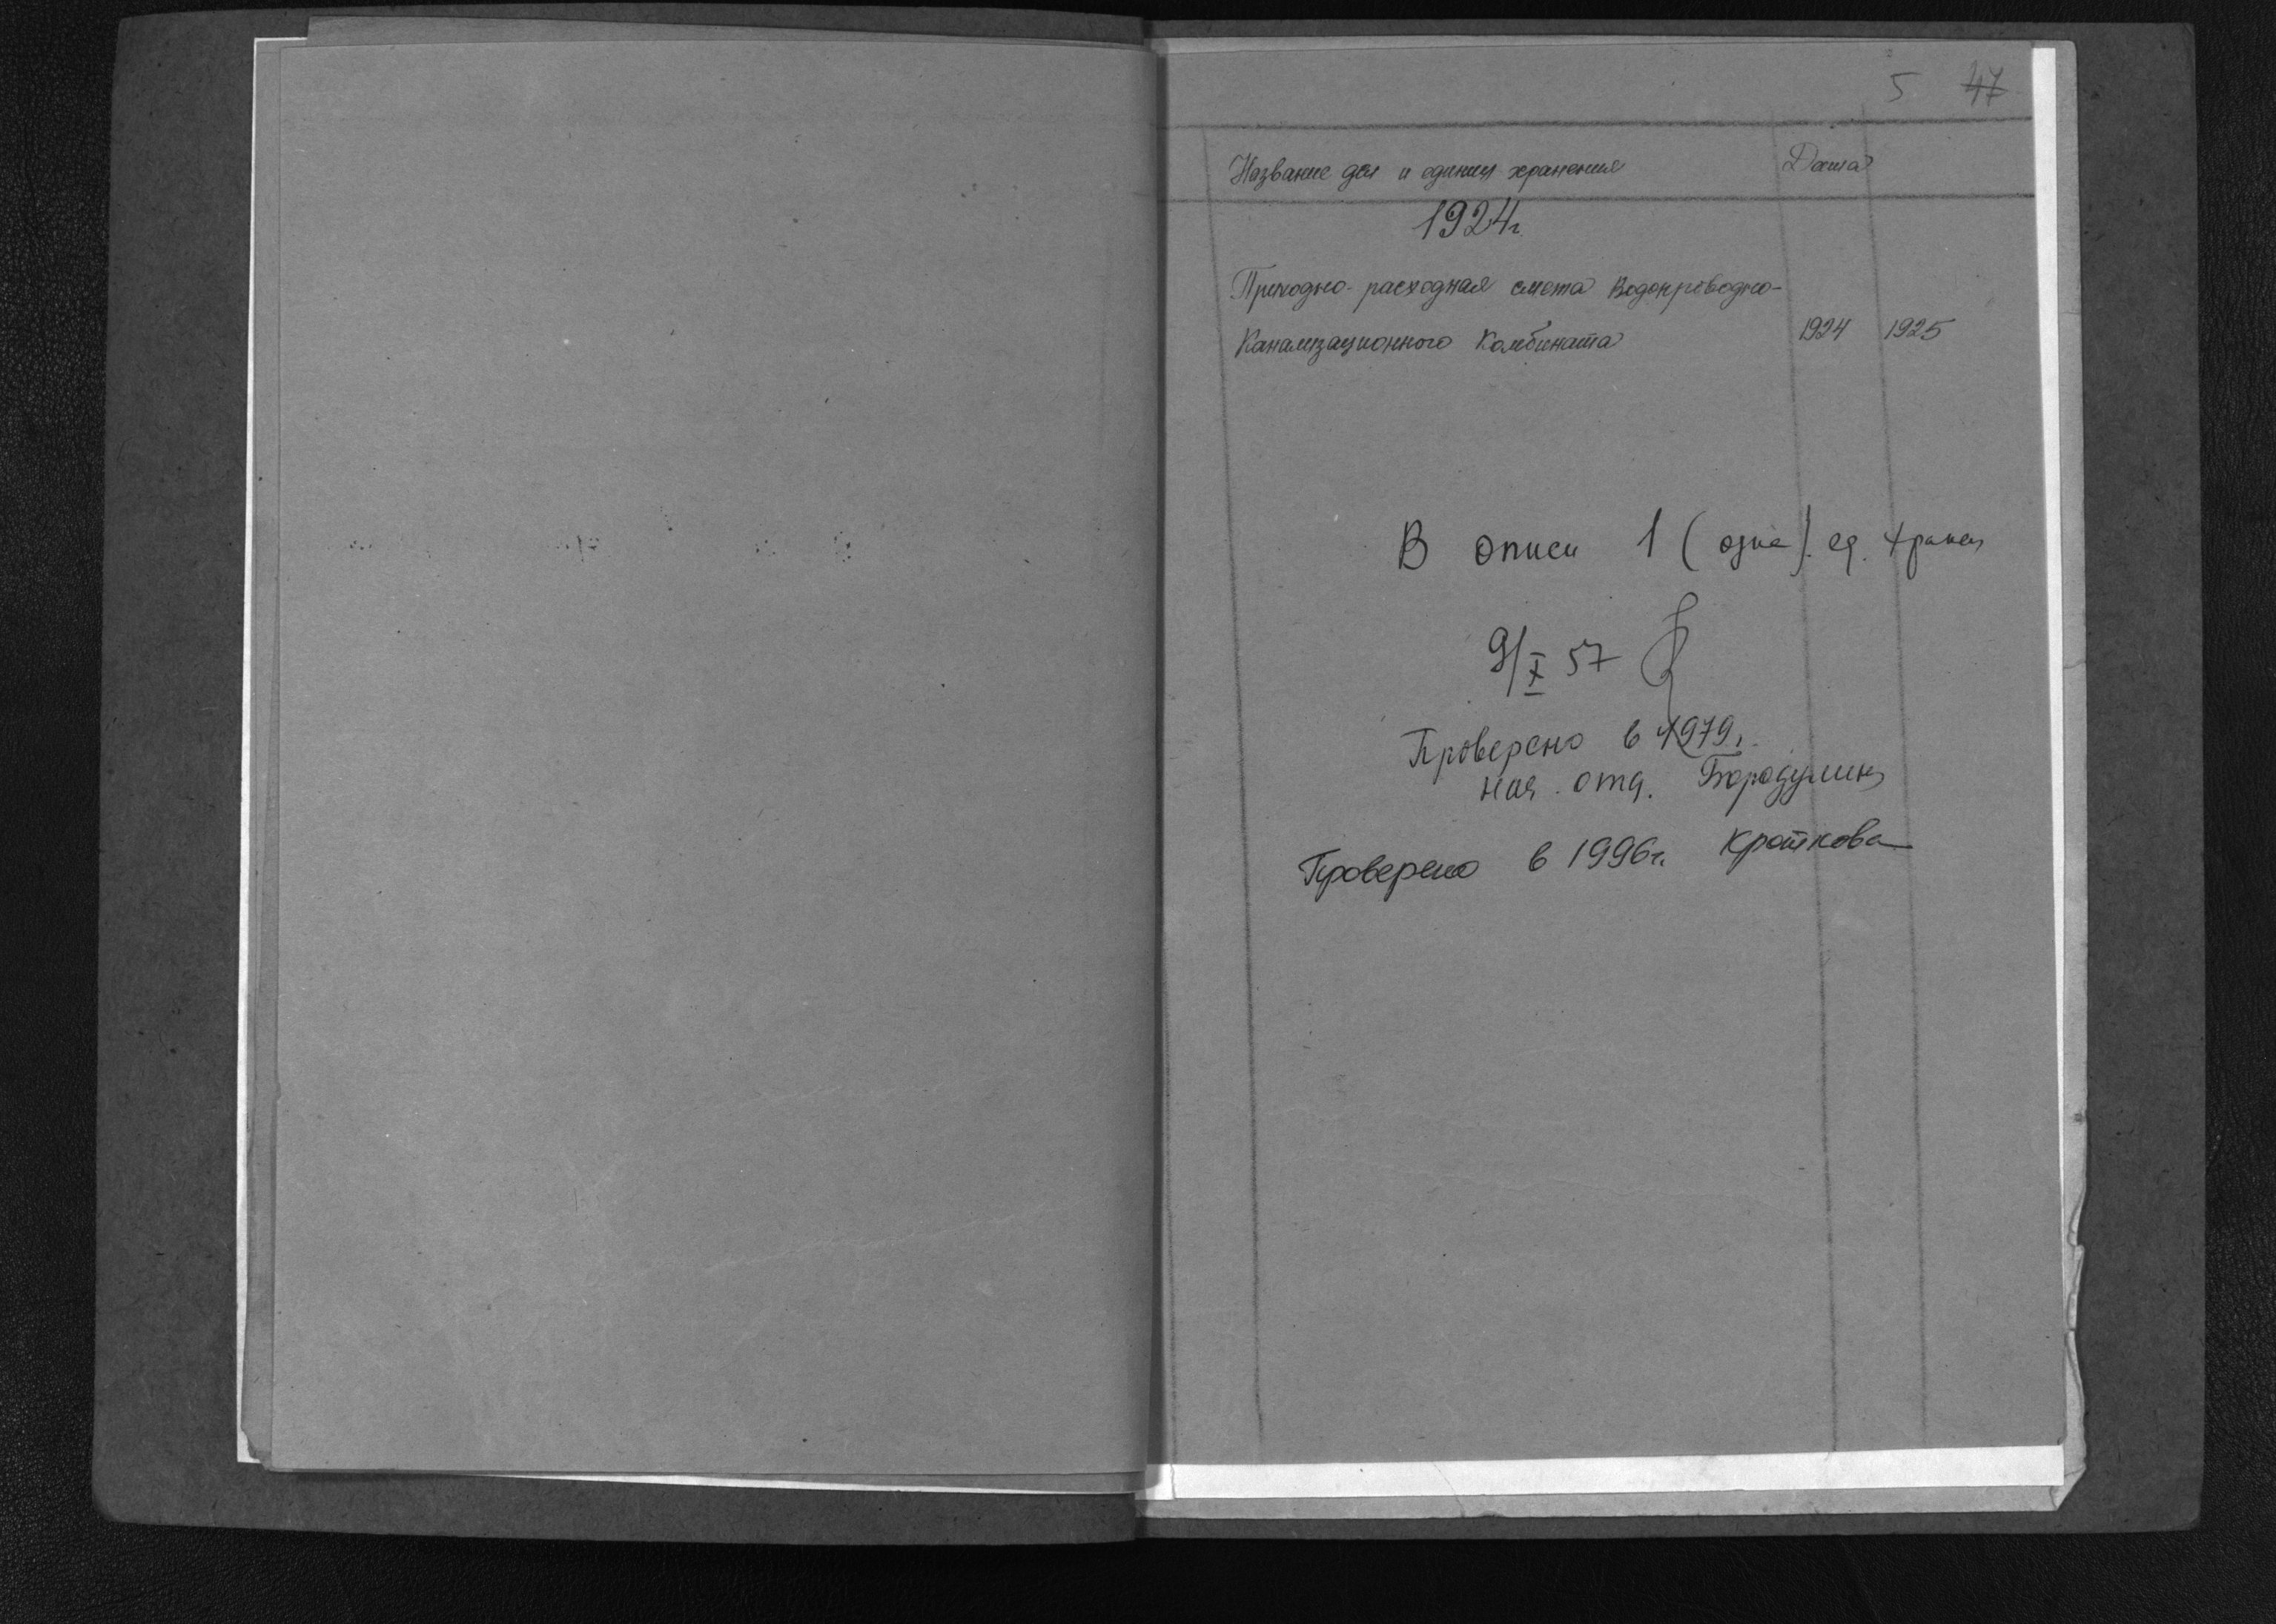 5 47
Название дел и единиц хранения Дата
1924г.
Приходно-расходная смета Водопроводно-
Канализационного Комбината 1924 1925
В описи 1 (одна) ед. хранен
9/X 57
Проверено в 1979г.
нач. отд. Бородулина
Проверено в 1996г. Кроткова